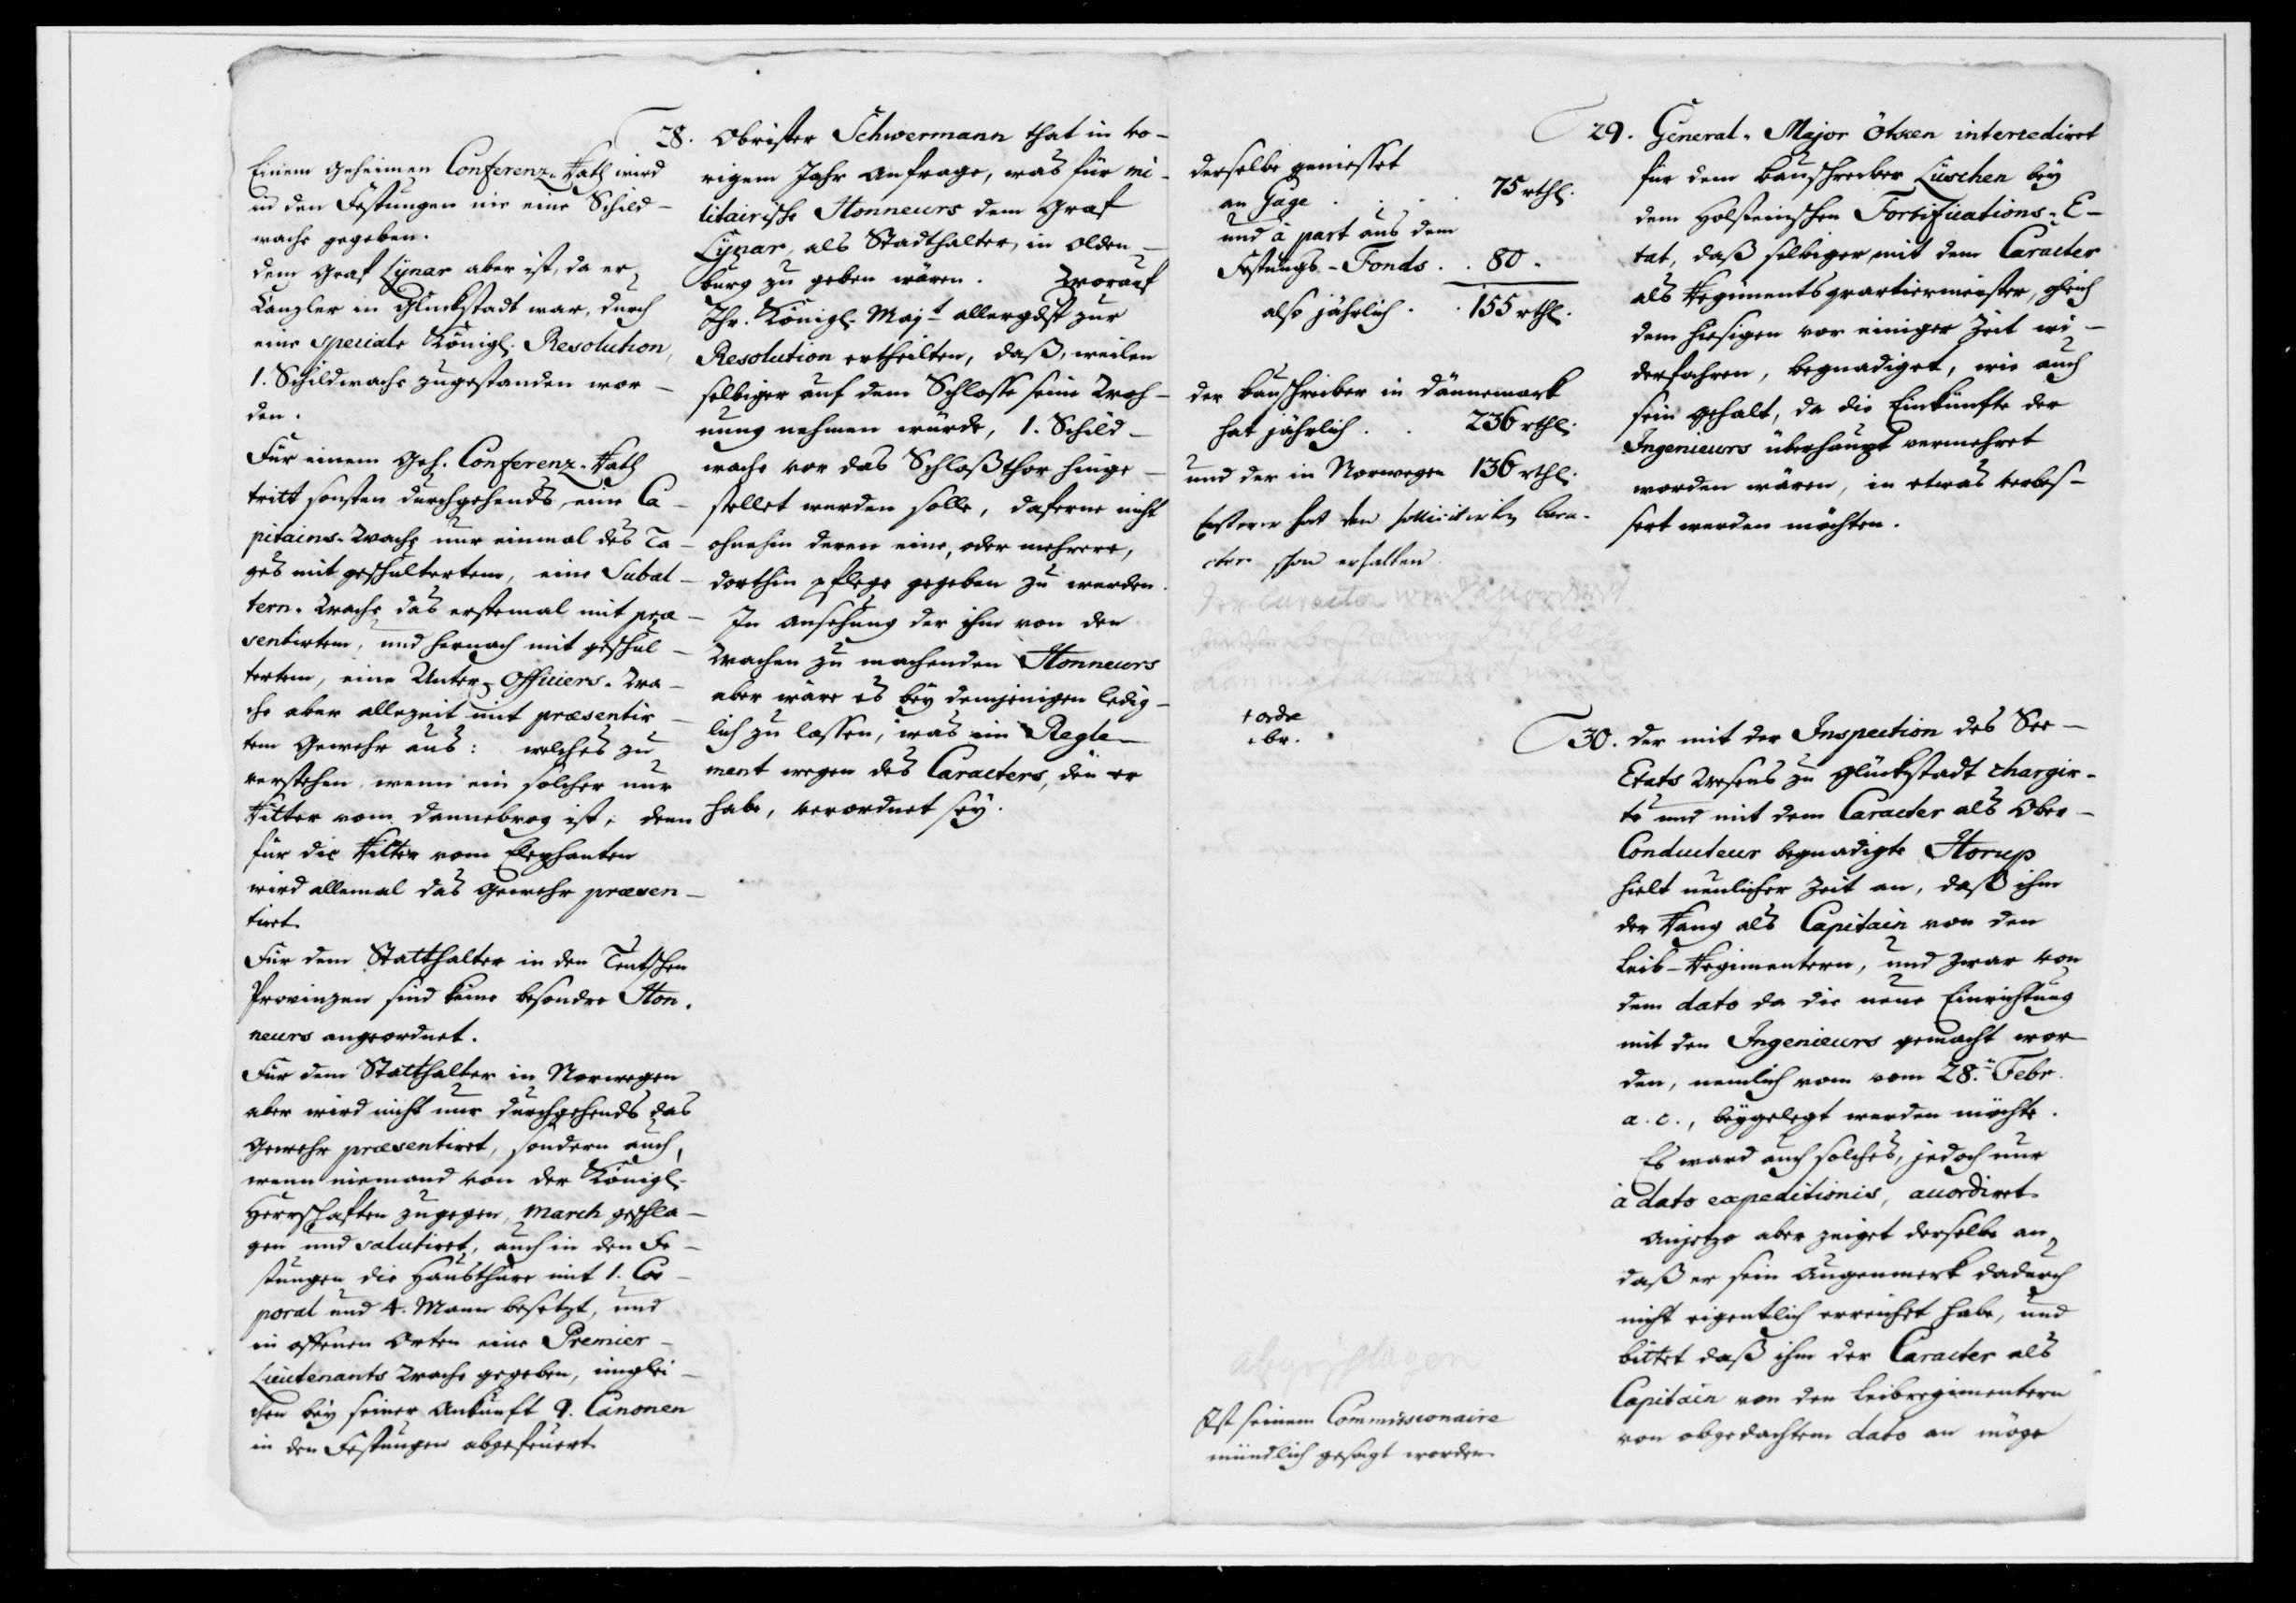 Einem Geheimen Conferenz-Rath wird
in den Festungen nie eine Schild-
wache gegeben.
dem Graf Lynar aber ist, da er
Canzler in Glückstadt war, durch
eine speciale Königl. Resolution,
1. Schildwache zugestanden wor-
den.
Für einem Geh. Conferenz-Rath
tritt sonsten durchgehends eine Ca-
pitains-Wache nur einmal des Ta-
ges mit geschultertem, eine Subal-
tern-Wache das erstemal mit præ-
sentirtem, und hernach mit geschul-
tertem, eine Unter-Officiers-Wa-
che aber allezeit mit præsentir-
tem Gewehr aus: welches zu
verstehen, wenn ein solcher nur
Ritter vom Dannebrog ist; denn
für die Ritter vom Elephanten
wird allemal das Gewehr præsen-
tiret.
Für dem Statthalter in den Teutschen
Provinzen sind keine besondre Hon-
neurs angeordnet.
Für dem Statthalter in Norwegen
aber wird nicht nur durchgehends das
Gewehr præsentiret, sondern auch,
wenn niemand von der Königl.
Herrschaften zugegen, March geschla-
gen und salutiret, auch in den Fe-
stungen die Hausthüre mit 1. Cor-
poral und 4. Mann besetzt, und
in offenen Orten eine Premier-
Lieutenants Wache gegeben, inglei-
chen bey seiner Ankunft 9. Canonen
in den Festungen abgefeuert.
28. Obrister Schwermann that in vo-
rigem Jahr Anfrage, was für mi-
litairische Honneurs dem Graf
Lynar, als Stadthalter, in Olden-
burg zu geben wären. Worauf
Ihr. Königl. Majt allergdst zur
Resolution ertheilten, daß, weilen
selbiger auf dem Schlosse seine Woh-
nung nehmen würde, 1. Schild-
wache vor das Schloßthor hinge-
stellet werden solle, daferne nicht
ohnehin deren eine, oder mehrere,
dorthin pflege gegeben zu werden.
In Ansehung der ihm von den
Wachen zu machenden Honneurs
aber wäre es bey demjenigen ledig-
lich zu lassen, was ein Regle-
ment wegen des Caracters, den er
habe, verordnet sey.
derselbe geniesset
an Gage . . . . 75 rthl.
und à part aus dem
Festungs-Fonds . . 80 -
also jährlich . . 155 rthl.
der Bauschreiber in Dännemark
hat jährlich . . 236 rthl.
und der in Norwegen 136 rthl.
Ersterer hat den sollicitirten Cara-
cter schon erhalten.
Der Caracter wird accordirt
+ ordre
+ br.
abgeschlagen
Ist seinem Commissionaire
mündlich gesagt worden.
29. General-Major Ötken intercediret
für dem Bauschreiber Lüschen bey
dem Holsteinschen Fortifications-E-
tat, daß selbiger mit dem Caracter
als Regimentsquartiermeister, gleich
dem hiesigen vor einiger Zeit wi-
derfahren, begnadiget, wie auch
sein Gehalt, da die Einkünfte der
Ingenieurs überhaupt vermehret
worden wären, in etwas verbes-
sert werden möchten.
30. der mit der Inspection des See-
Etats Wesens zu Glückstadt chargir-
te und mit dem Caracter als Ober-
Conducteur begnadigte Horup
hielt neulicher Zeit an, daß ihm
der Rang als Capitain von den
Leib-Regimentern, und zwar von
dem dato da die neue Einrichtung
mit den Ingenieurs gemacht wor-
den, nemlich vom vom 28. Febr.
a. c., beygelegt werden möchte.
Es ward auch solches, jedoch nur
à dato expeditionis, accordiret.
Anjetzo aber zeiget derselbe an,
daß er sein Augenmerk dadurch
nicht eigentlich erreichet habe, und
bittet daß ihm der Caracter als
Capitain von den Leibregimentern
von obgedachtem dato an möge